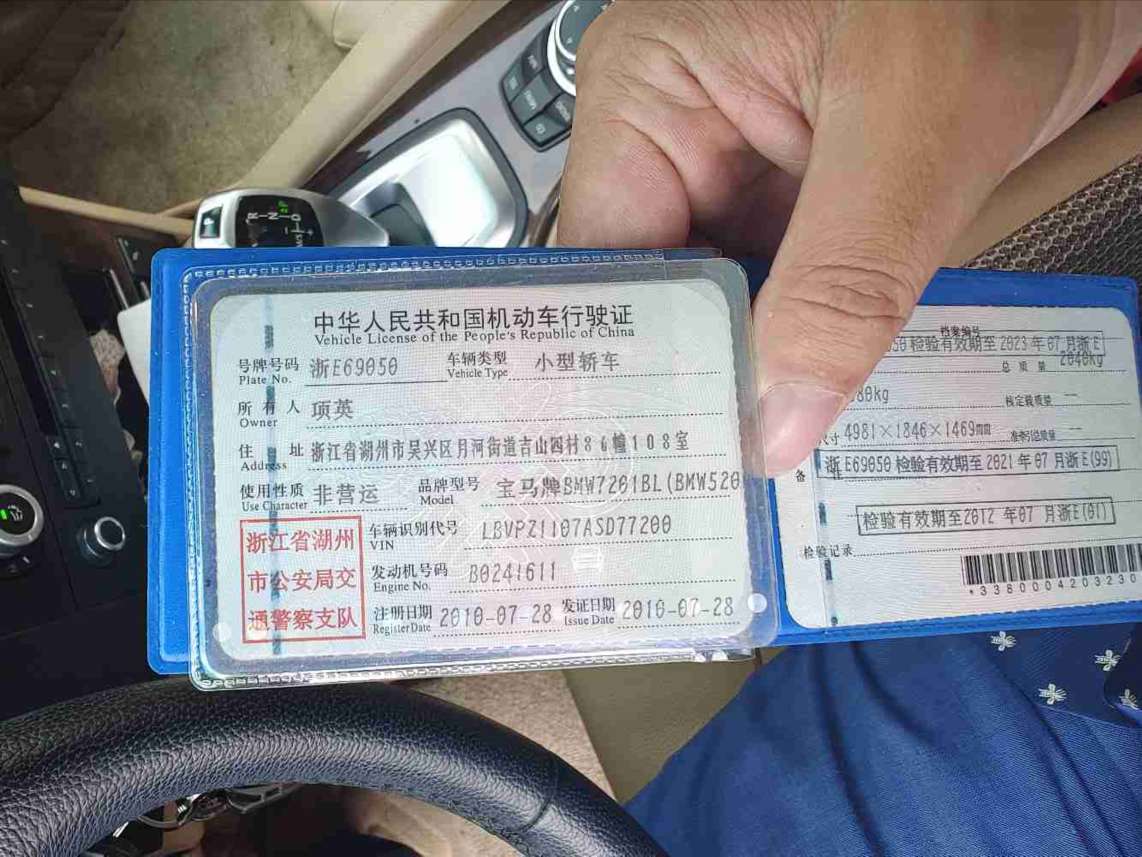 中华人民共和国机动车行驶证
Vehicle License of the People's Republic of China
号牌号码 浙E69050 车辆类型 小型轿车
Plate No. Vehicle Type
所有人 项英
Owner
住址 浙江省湖州市吴兴区月河街道吉山四村86幢108室
Address
使用性质 非营运 品牌型号 宝马牌BMW7201BL(BMW520
Use Character Model
浙江省湖州
市公安局交
通警察支队
车辆识别代号 LBVPZ1107ASD77200
VIN
发动机号码 B0241611
Engine No.
注册日期 2010-07-28 发证日期 2010-07-28
Register Date Issue Date
档案编号
50 检验有效期至 2023 年 07 月浙E
总质量 2040kg
80kg 核定载质量 —
尺寸 4981×1846×1469mm 准牵引总质量 —
备
浙E69050 检验有效期至 2021 年 07 月浙E(99)
检验有效期至2012 年 07 月浙E(01)
检验记录
*3380004203230
R N D
P